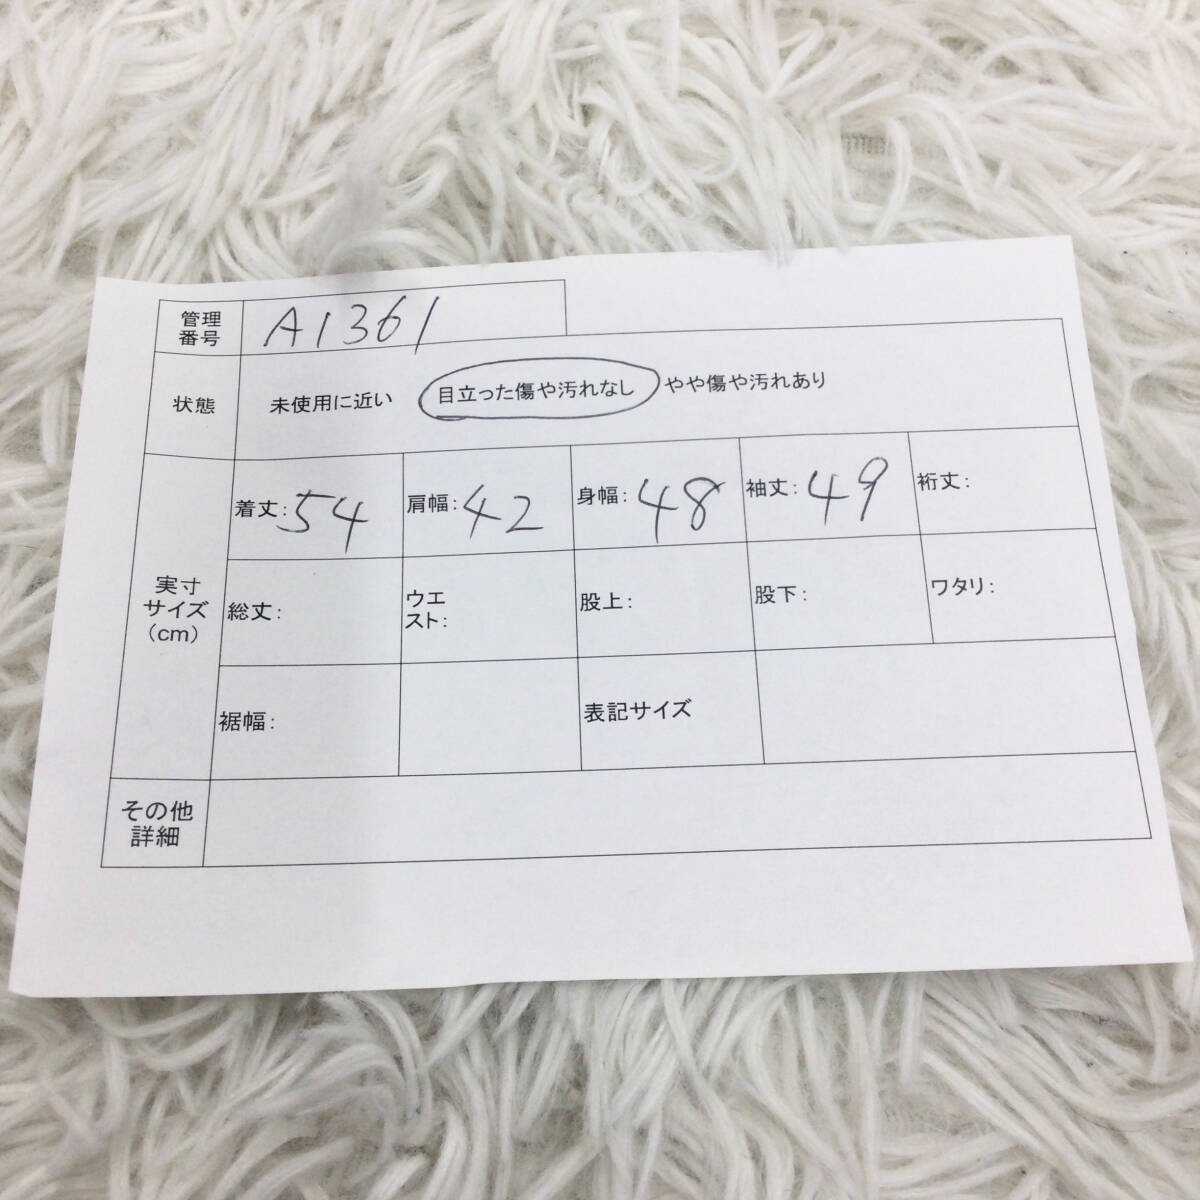 管理
番号
A1361
状態
未使用に近い 目立った傷や汚れなし やや傷や汚れあり
実寸
サイズ
（cm）
着丈：54
肩幅：42
身幅：48
袖丈：49
裄丈：
総丈：
ウエ
スト：
股上：
股下：
ワタリ：
裾幅：
表記サイズ
その他
詳細